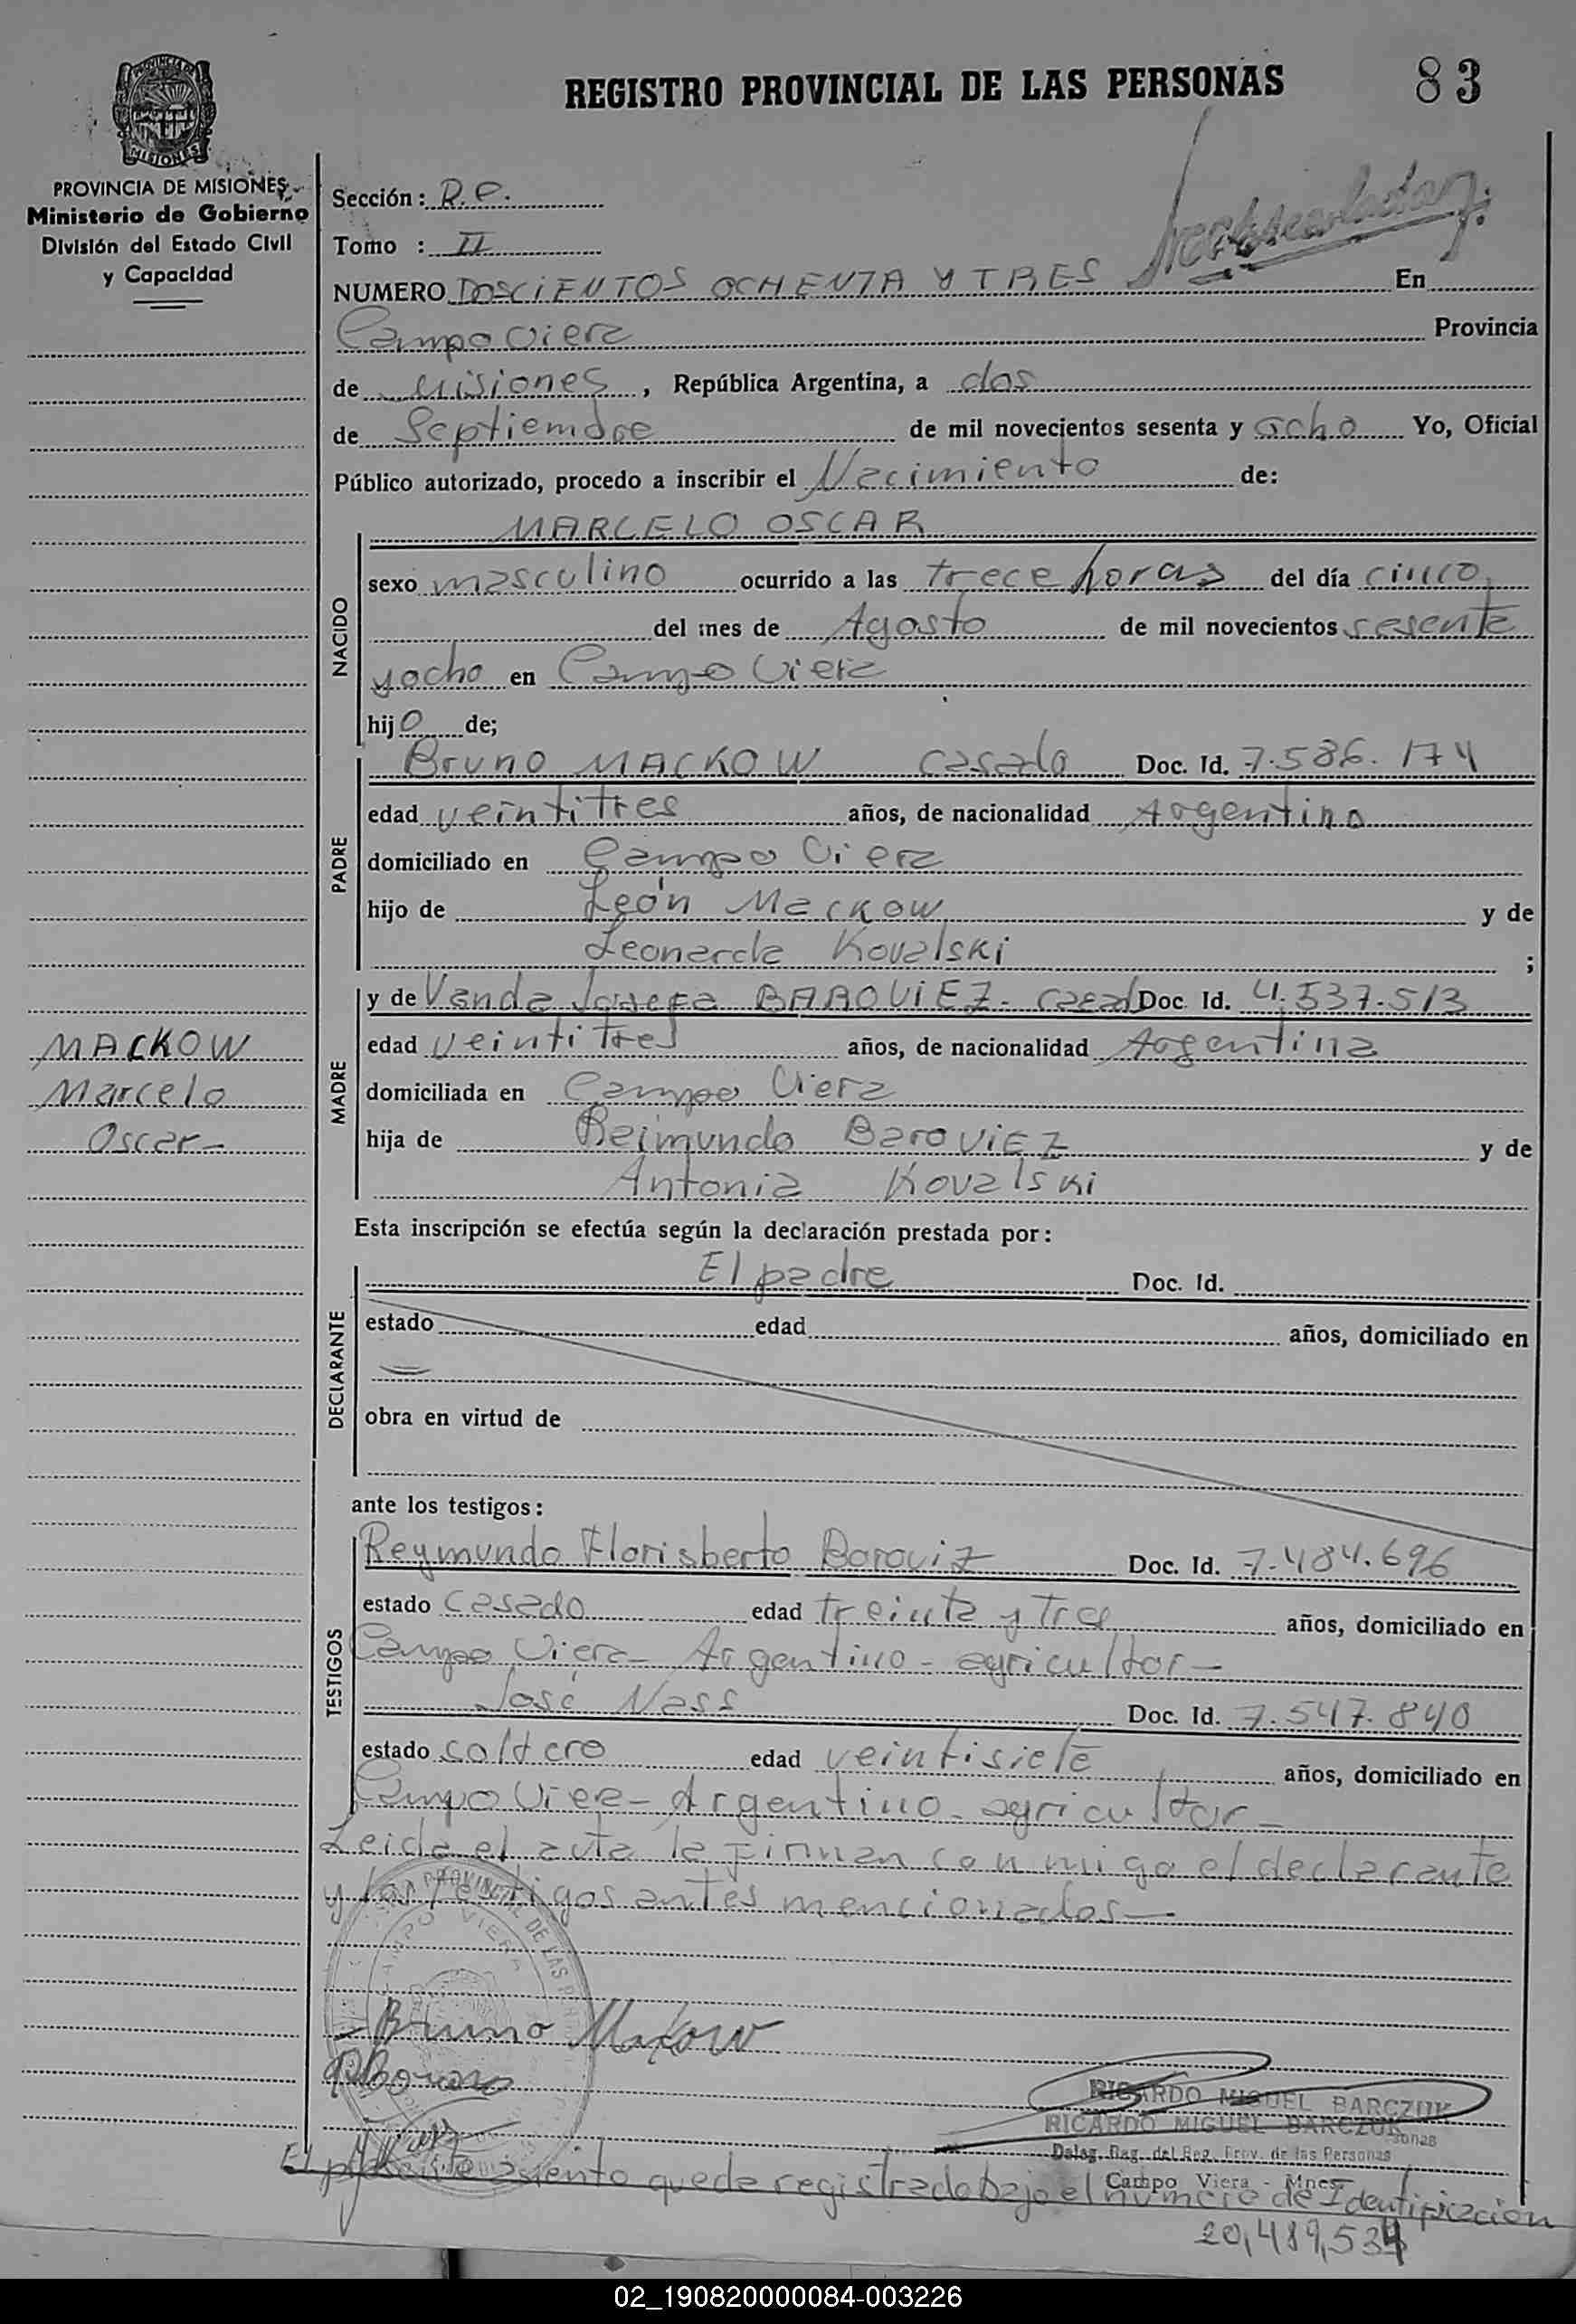 REGISTRO PROVINCIAL DE LAS PERSONAS 83
MISIONES
PROVINCIA DE MISIONES
Ministerio de Gobierno
División del Estado Civil
y Capacidad
Sección: R.P.
Tomo : II
NUMERO DOSCIENTOS OCHENTA Y TRES En
Campo Viera Provincia
de Misiones, República Argentina, a dos
de Septiembre de mil novecientos sesenta y ocho Yo, Oficial
Público autorizado, procedo a inscribir el Nacimiento de:
NACIDO
MARCELO OSCAR
sexo masculino ocurrido a las trece horas del día cinco
del mes de Agosto de mil novecientos sesenta
y ocho en Campo Viera
hijo de;
PADRE
Bruno MACKOW casado Doc. Id. 7.586.174
edad veintitres años, de nacionalidad Argentino
domiciliado en Campo Viera
hijo de León Mackow y de
Leonarda Kovalski ;
MADRE
y de Vanda Josefa BAROVIEZ- Doc. Id. 4.537.513
edad veintitres años, de nacionalidad Argentina
domiciliada en Campo Viera
hija de Reimundo BaroviEZ y de
Antonia Kovalski
MACKOW
Marcelo
Oscar-
Esta inscripción se efectúa según la declaración prestada por:
DECLARANTE
El padre Doc. Id.
estado edad años, domiciliado en
obra en virtud de
ante los testigos:
TESTIGOS
Reymundo Florisberto Baroviz Doc. Id. 7.484.696
estado casado edad treinta y tres años, domiciliado en
Campo Viera- Argentino- agricultor-
José Nass Doc. Id. 7.547.840
estado soltero edad veintisiete años, domiciliado en
Campo Viera- Argentino- agricultor-
Leida el acta la firman conmigo el declarante
y los testigos antes mencionados-
PROVINCIAL DE LAS
CAMPO VIERA
Bruno Makow
RICARDO MIGUEL BARCZUK
RICARDO MIGUEL BARCZUK
Deleg. Reg. del Reg. Prov. de las Personas
Campo Viera - Mnes.
El presente asiento queda registrado bajo el numero de Identificación
20,489,534
02_190820000084-003226